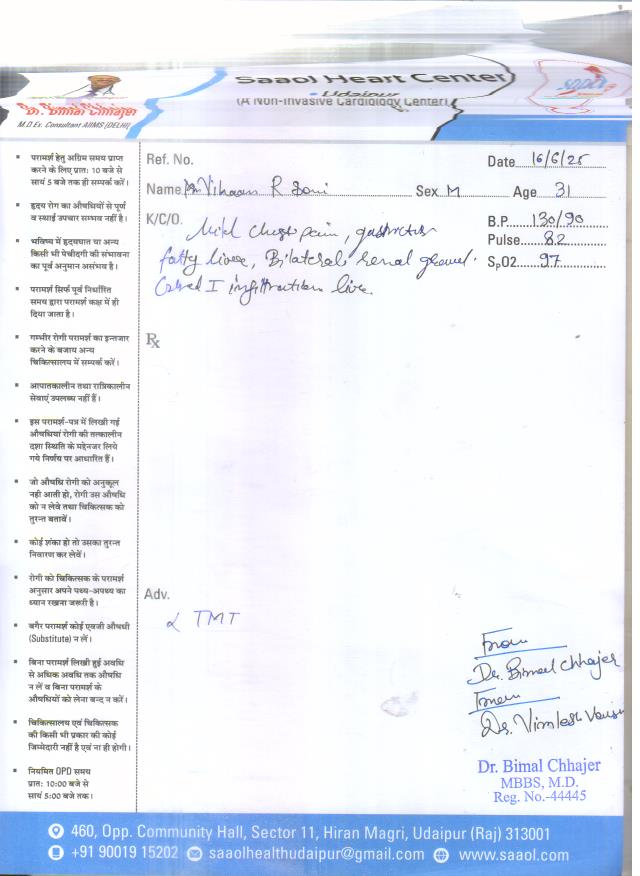 Saaol Heart Center
Udaipur
(A Non-Invasive Cardiology Center)
Dr. Bimal Chhajer
M.D.Ex. Consultant AIIMS (DELHI)
saaol
Ref. No.
Date 16/6/25
Name Vihaan R Soni Sex M Age 31
K/C/O. Mild chest pain, gastritis
fatty liver, Bilateral renal
Grad I infiltration live.
B.P. 130/90
Pulse 82
SpO2 97
Rx
Adv.
TMT
From
Dr. Bimal Chhajer
From
Dr. Vimlesh
Dr. Bimal Chhajer
MBBS, M.D.
Reg. No.-44445
परामर्श हेतु अग्रिम समय प्राप्त
करने के लिए प्रात: 10 बजे से
सायं 5 बजे तक ही सम्पर्क करें।
हृदय रोग का औषधियों से पूर्ण
व स्थाई उपचार सम्भव नहीं है।
भविष्य में हृदयघात या अन्य
किसी भी पेचीदगी की संभावना
का पूर्व अनुमान असंभव है।
परामर्श सिर्फ पूर्व निर्धारित
समय द्वारा परामर्श कक्ष में ही
दिया जाता है।
गम्भीर रोगी परामर्श का इन्तजार
करने के बजाय अन्य
चिकित्सालय में सम्पर्क करें।
आपातकालीन तथा रात्रिकालीन
सेवाएं उपलब्ध नहीं हैं।
इस परामर्श-पत्र में लिखी गई
औषधियां रोगी की तत्कालीन
दशा स्थिति के मद्देनजर लिये
गये निर्णय पर आधारित हैं।
जो औषधि रोगी को अनुकूल
नही आती हो, रोगी उस औषधि
को न लेवे तथा चिकित्सक को
तुरन्त बतावें।
कोई शंका हो तो उसका तुरन्त
निवारण कर लेवें।
रोगी को चिकित्सक के परामर्श
अनुसार अपने पथ्य-अपथ्य का
ध्यान रखना जरूरी है।
बगैर परामर्श कोई एवजी औषधी
(Substitute) न लें।
बिना परामर्श लिखी हुई अवधि
से अधिक अवधि तक औषधि
न लें व बिना परामर्श के
औषधियों को लेना बन्द न करें।
चिकित्सालय एवं चिकित्सक
की किसी भी प्रकार की कोई
जिम्मेदारी नहीं है एवं ना ही होगी।
नियमित OPD समय
प्रात: 10:00 बजे से
सायं 5:00 बजे तक।
460, Opp. Community Hall, Sector 11, Hiran Magri, Udaipur (Raj) 313001
+91 90019 15202 saaolhealthudaipur@gmail.com www.saaol.com